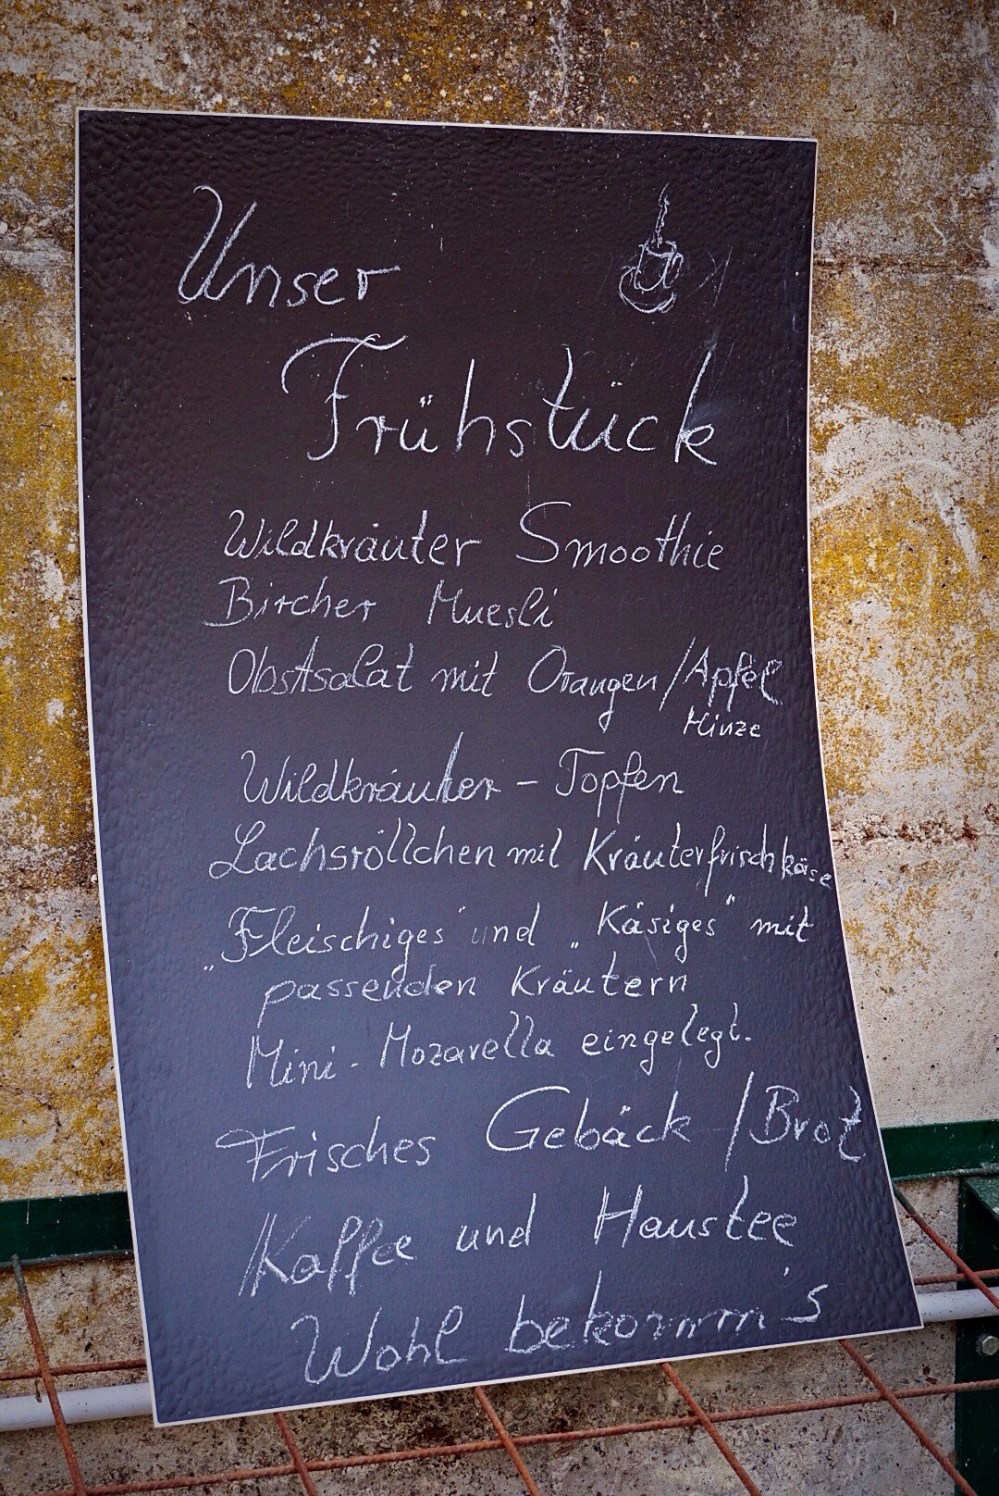 Unser
Frühstück
Wildkräuter Smoothie
Bircher Muesli
Obstsalat mit Orangen/Apfel
Minze
Wildkräuter - Topfen
Lachsröllchen mit Kräuterfrischkäse
"Fleischiges" und "Käsiges" mit
passenden Kräutern
Mini - Mozarella eingelegt.
Frisches Gebäck / Brot
Kaffee und Haustee
Wohl bekomm's